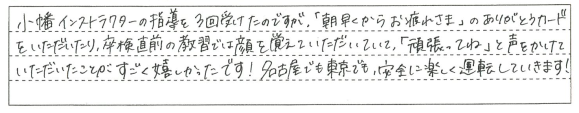 小幡インストラクターの指導を3回受けたのですが、「朝早くからお疲れさま」のありがとうカード
をいただいたり、卒検直前の教習では顔を覚えていただいていて、「頑張ってね」と声をかけて
いただいたことがすごく嬉しかったです！名古屋でも東京でも、安全に楽しく運転していきます！